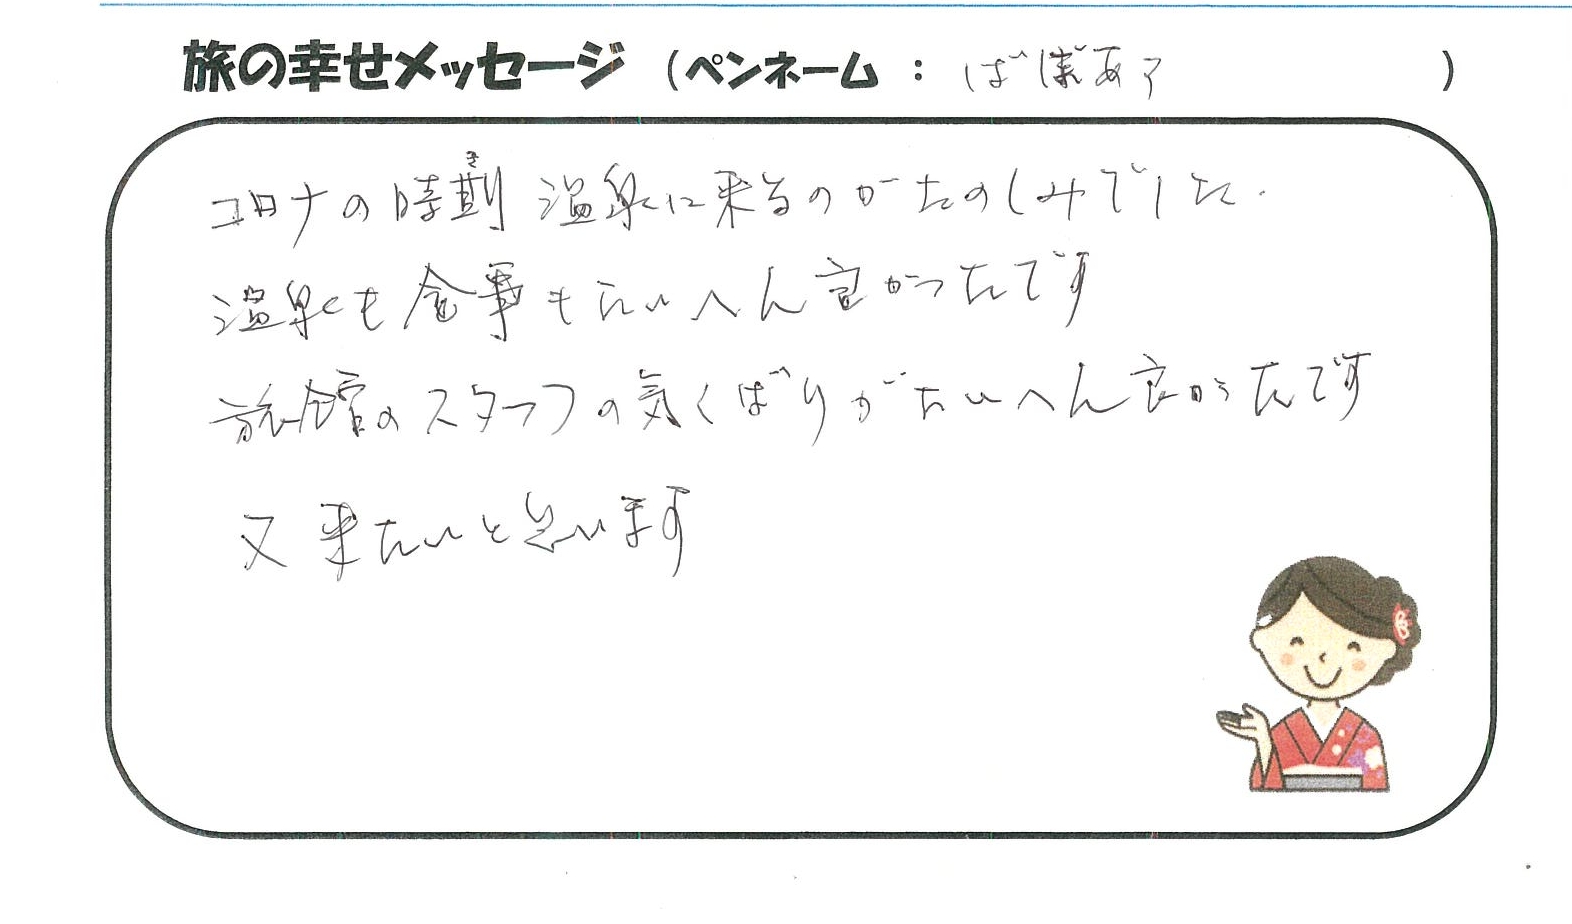 旅の幸せメッセージ (ペンネーム : ばぼあァ )
コロナの時期 温泉に来るのがたのしみでした.
温泉も食事もたいへん良かったです
旅館のスタッフの気くばりがたいへん良かったです
又来たいと思います